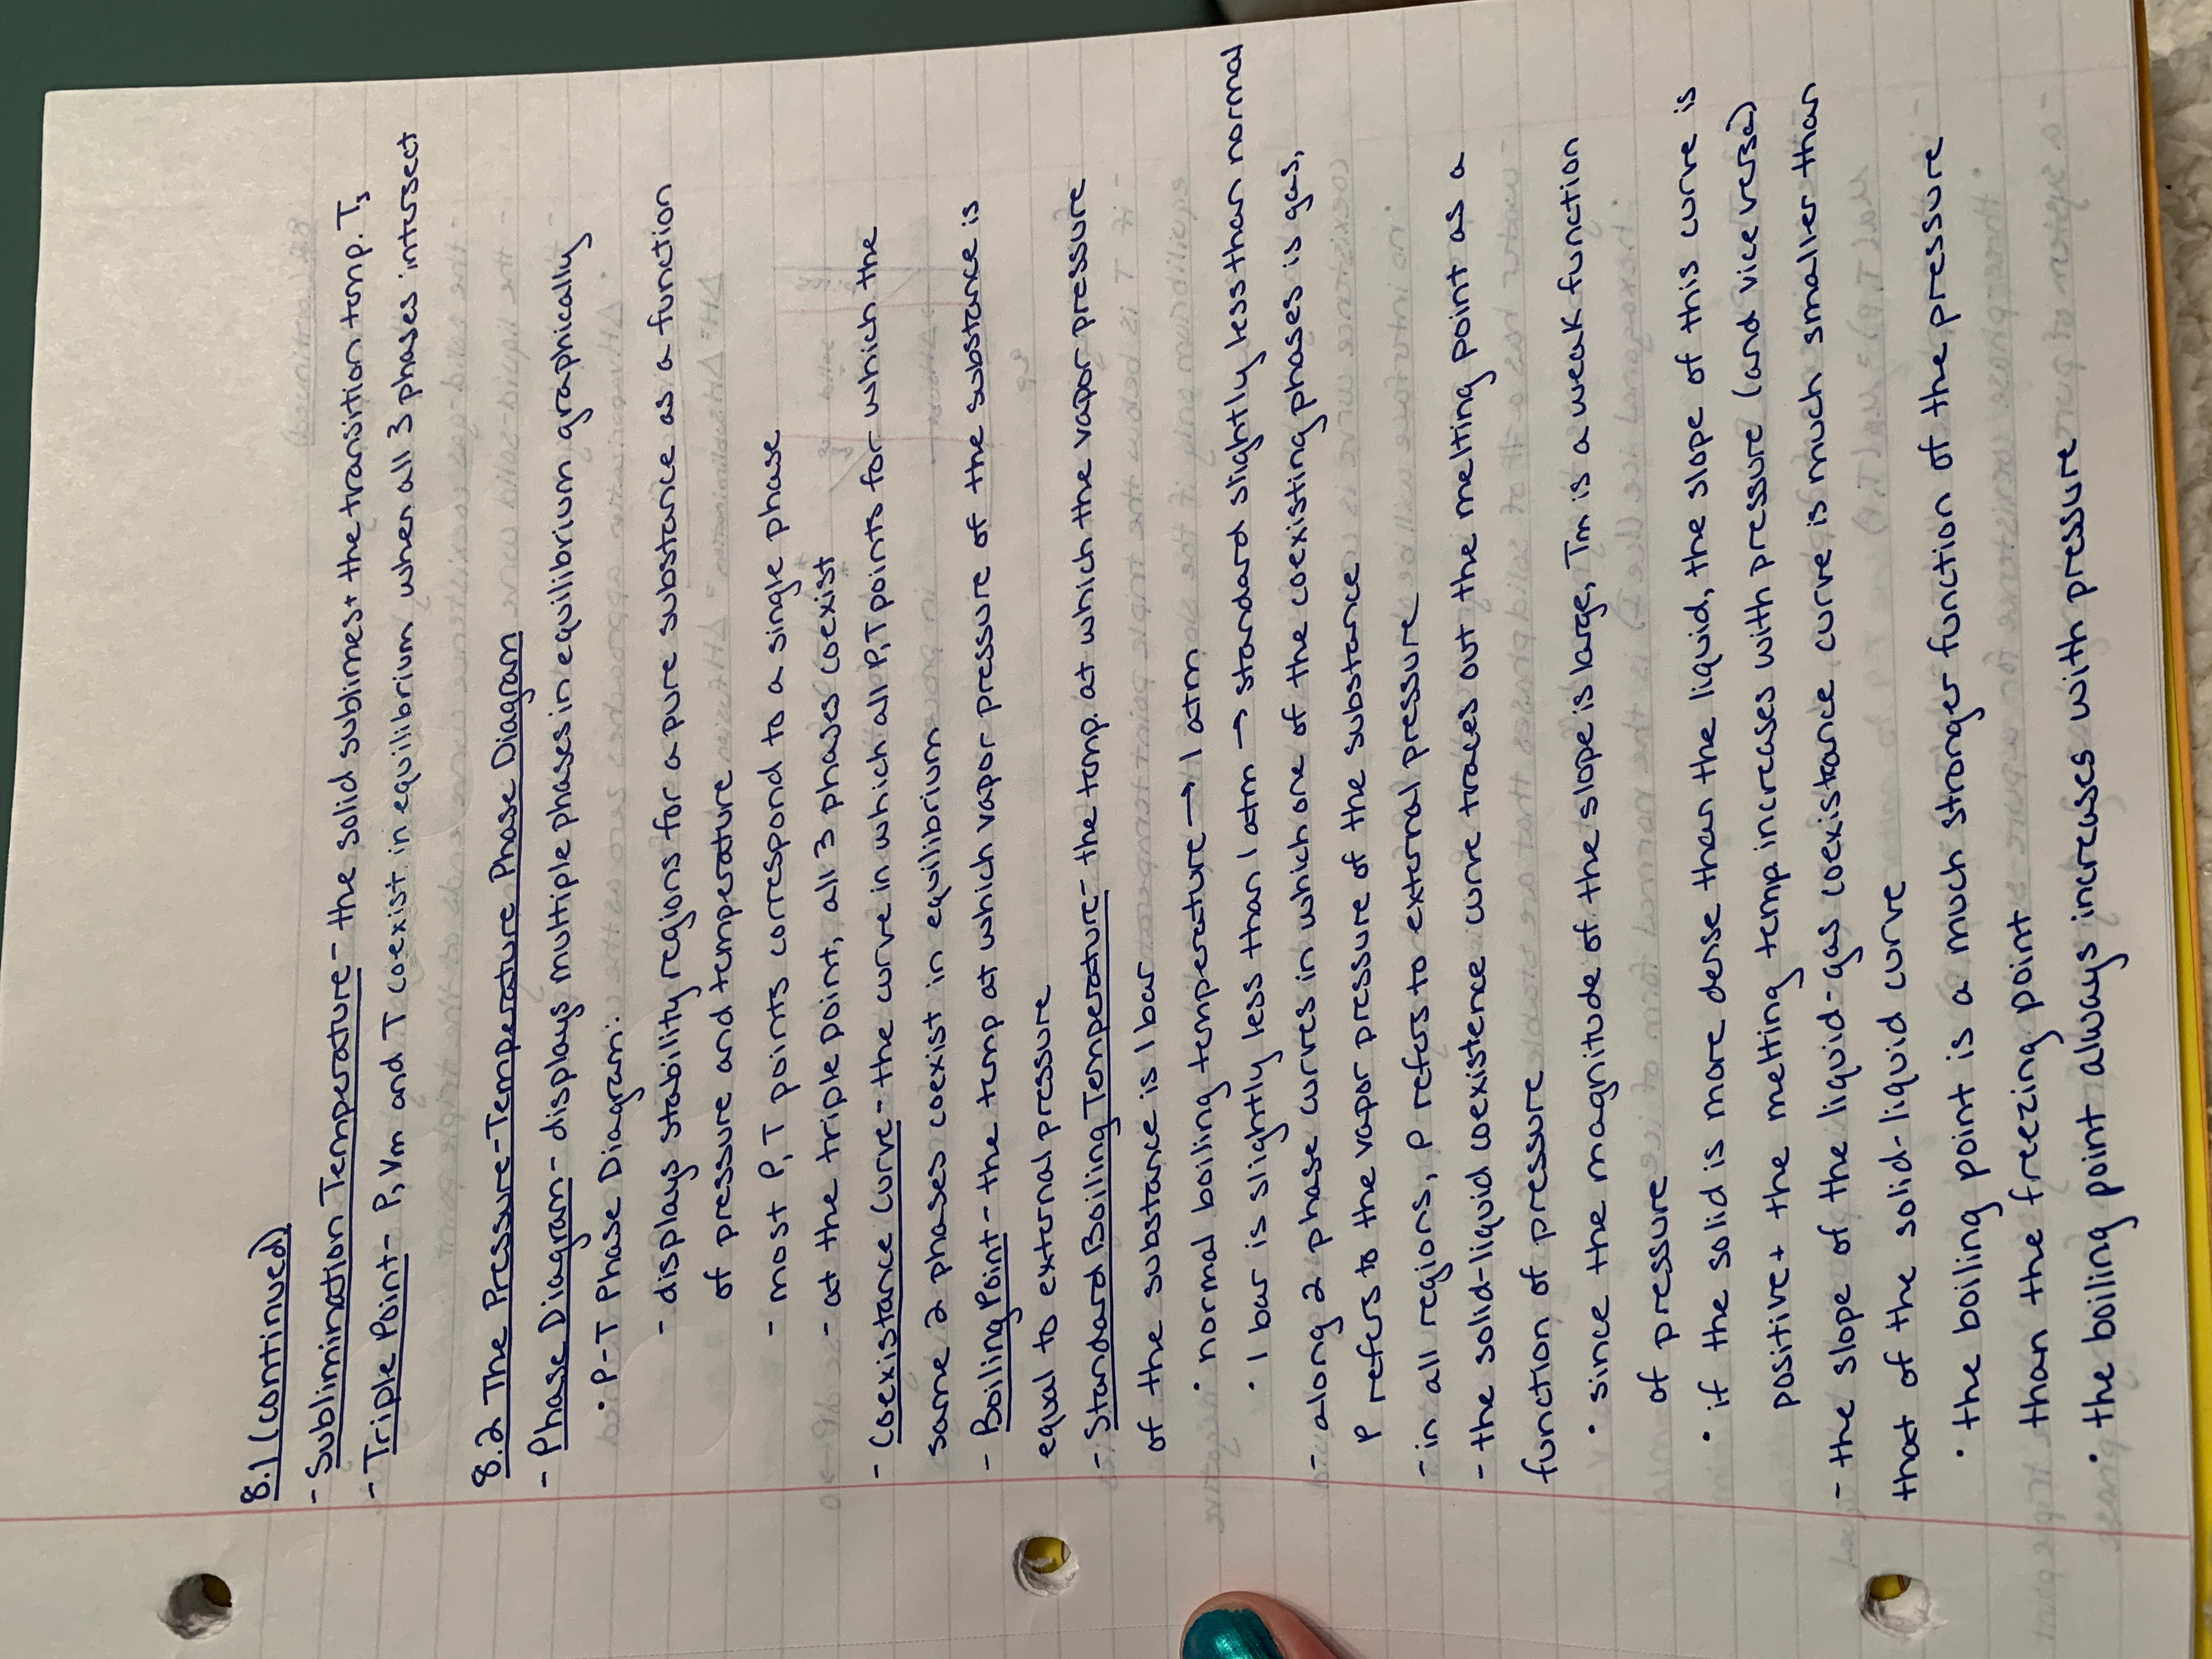 8.1 (continued)
- Sublimination Temperature - the solid sublimes + the transition temp. Ts
- Triple Point - P, Vm and T coexist in equilibrium when all 3 phases intersect
8.2 The Pressure-Temperature Phase Diagram
- Phase Diagram - displays multiple phases in equilibrium graphically
• P-T Phase Diagram:
- displays stability regions for a pure substance as a function
of pressure and temperature
- most P, T points correspond to a single phase
- at the triple point, all 3 phases coexist
- Coexistance Curve - the curve in which all P, T points for which the
same 2 phases coexist in equilibrium
- Boiling Point - the temp at which vapor pressure of the substance is
equal to external pressure
- Standard Boiling Temperature - the temp. at which the vapor pressure
of the substance is 1 bar
• normal boiling temperature → 1 atm
• 1 bar is slightly less than 1 atm → standard slightly less than normal
- along 2 phase curves in which one of the coexisting phases is gas,
P refers to the vapor pressure of the substance
- in all regions, P refers to external pressure
- the solid-liquid coexistence curve traces out the melting point as a
function of pressure
• since the magnitude of the slope is large, Tm is a weak function
of pressure
• if the solid is more dense than the liquid, the slope of this curve is
positive + the melting temp. increases with pressure (and vice versa)
- the slope of the liquid-gas coexistance curve is much smaller than
that of the solid-liquid curve
• the boiling point is a much stronger function of the pressure
than the freezing point
• the boiling point always increases with pressure